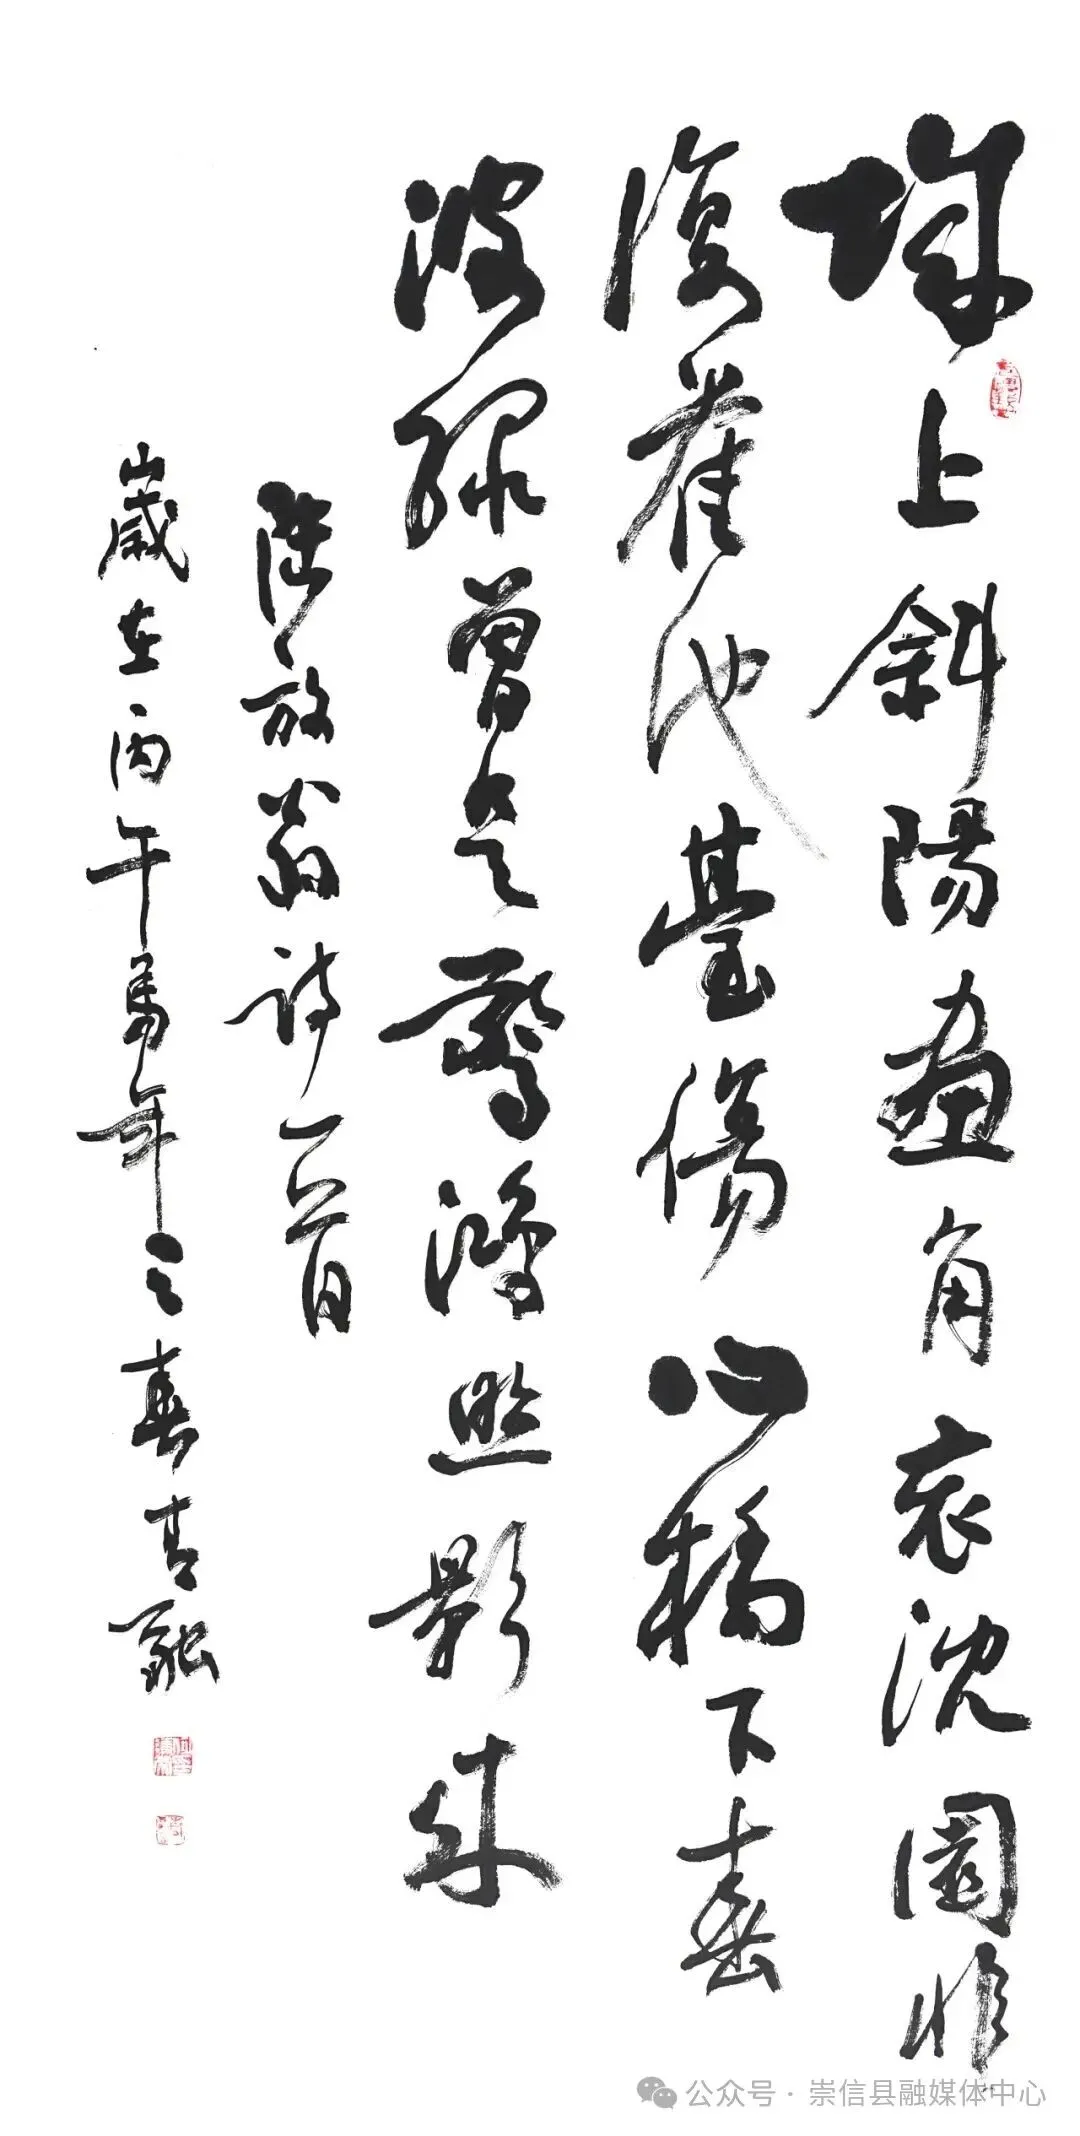 城上斜陽畫角哀沈園非
復舊池臺傷心橋下春
波綠曾是驚鴻照影來
陸放翁詩一首
歲在丙午馬年之春
公众号 · 崇信县融媒体中心